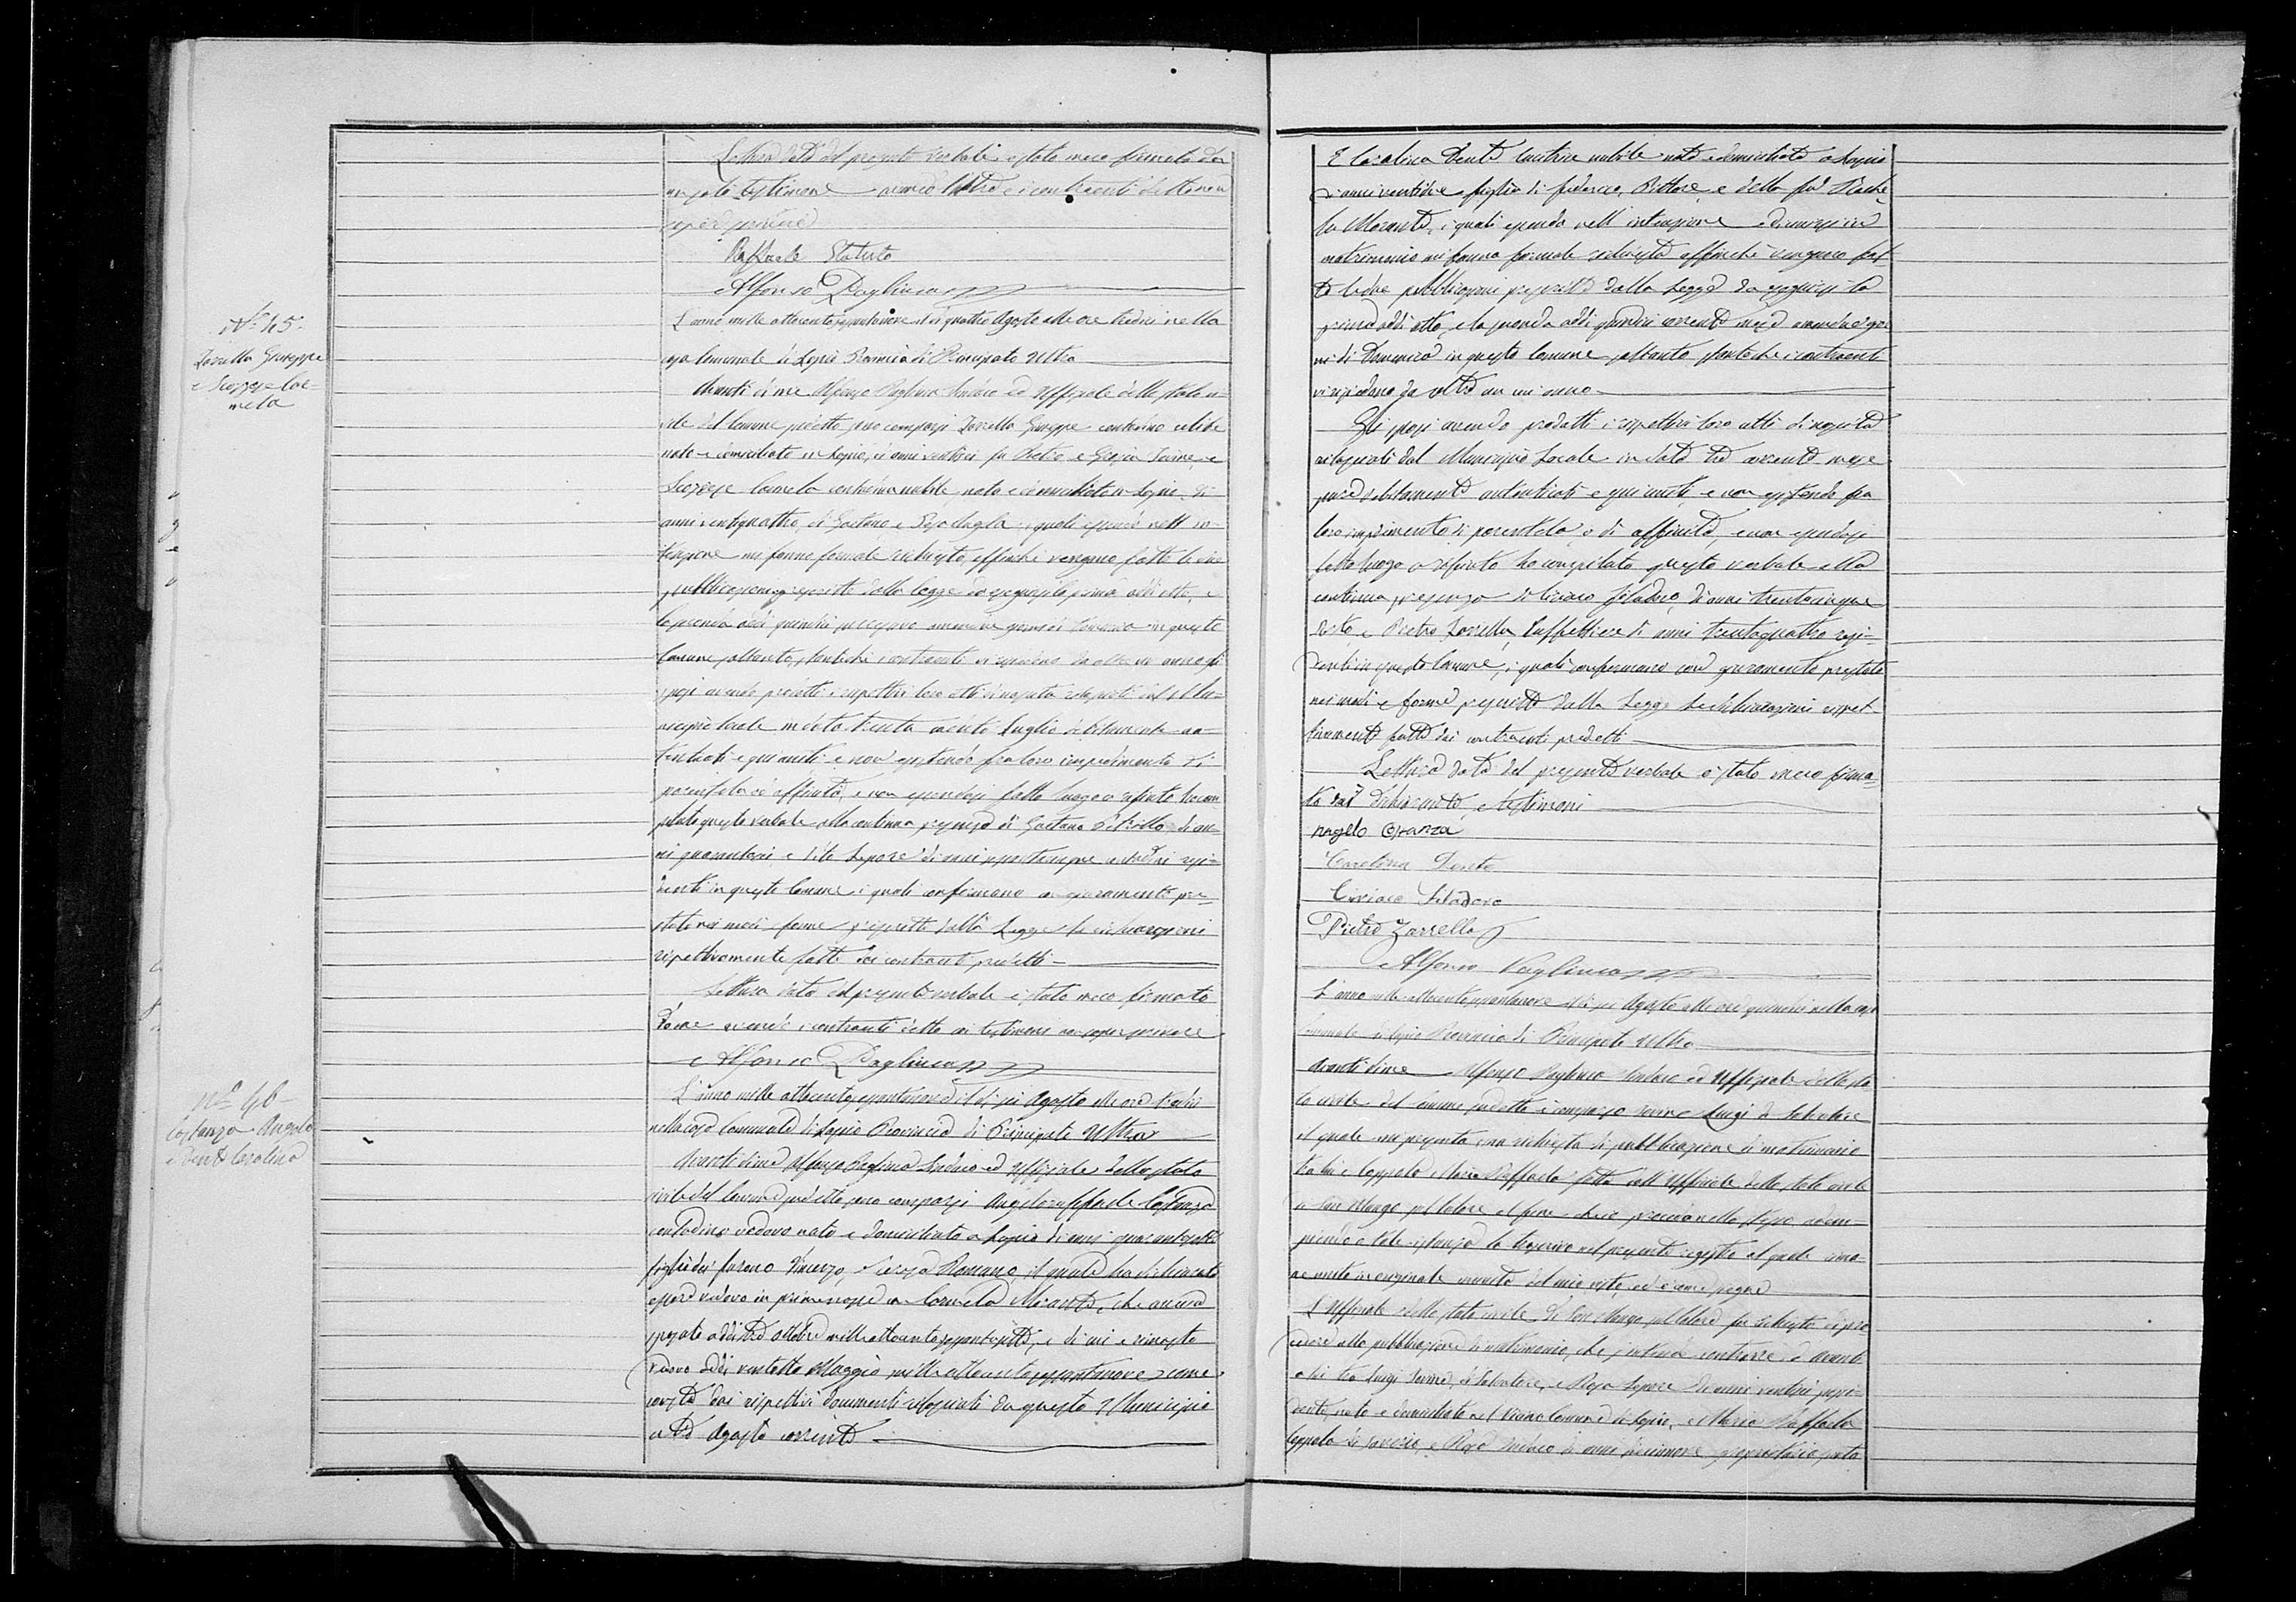 Lettura data del presente verbale è stato meco firmato da
un solo testimone avendo l'altro e i contraenti detto non
sapere scrivere
Raffaele Statuto
Alfonso Pagliuca
N.º 45.
Zarrella Giuseppe
e Scozzese Car-
mela
L'anno mille ottocento settantanove il dì quattro Agosto alle ore tredici nella
casa Comunale di Lapio Provincia di Principato Ultra
Avanti di me Alfonso Pagliuca Sindaco ed Uffiziale dello stato ci-
vile del Comune suddetto, sono comparsi Zarrella Giuseppe contadino celibe
nato e domiciliato in Lapio, di anni ventisei fu Pietro e Grazia Iarine, e
Scozzese Carmela contadina nubile, nata e domiciliata in Lapio, di
anni ventiquattro, di Gaetano e Rosa, i quali essendo nell'in-
tenzione mi fanno formale richiesta, affinché vengano fatte le due
pubblicazioni prescritte dalla legge da eseguirsi la prima addì otto, e
la seconda addì quindici successivo giorni di Domenica in questo
Comune soltanto, stanteché i contraenti vi risiedono da oltre un anno gli
sposi avendo prodotti i rispettivi loro atti di nascita rilasciati dal Mu-
nicipio locale in data trenta caduto Luglio debitamente au-
tenticati e qui uniti e non esistendo fra loro impedimento di
parentela o di affinità, e non essendosi fatto luogo a rifiuto ho com-
pilato questo verbale alla continua presenza di Gaetano Petrillo di an-
ni quarantasei e Vito Lepore di anni contadini resi-
denti in questo Comune, i quali confermano con giuramento pre-
stato nei modi e forme prescritti dalla Legge le dichiarazioni
rispettivamente fatte dai contraenti predetti
Lettura data del presente verbale è stato meco firmato
da me avendo i contraenti detto coi testimoni non saper scrivere
Alfonso Pagliuca
N.º 46
Costanza Angelo
e Dente Carolina
L'anno mille ottocento settantanove il dì sei Agosto alle ore tredici
nella casa Comunale di Lapio Provincia di Principato Ultra
Avanti di me Alfonso Pagliuca Sindaco ed Uffiziale dello stato
civile del Comune suddetto, sono comparsi Angeloraffaele Costanza
contadino vedovo nato e domiciliato a Lapio di anni quarantasette
figlio dei furono Vincenzo, e Teresa Romano, il quale ha dichiarato
essere vedovo in prime nozze con Carmela Morante, che aveva
sposato addì tre ottobre mille ottocento settantasette, e di cui è rimasto
vedovo addì ventotto Maggio mille ottocento settantanove come
consta dai rispettivi documenti rilasciati da questo Municipio
a tre Agosto corrente
E Carolina Dente cucitrice nubile nata e domiciliata a Lapio
d'anni ventidue figlia di Federico, Pittore, e della fu Rache
la Morante, i quali essendo nell'intenzione di unirsi in
matrimonio mi fanno formale richiesta affinché vengano fat
te le due pubblicazioni prescritte dalla Legge da eseguirsi la
prima addì otto, e la seconda addì quindici corrente mese gior
ni di Domenica in questo Comune soltanto, stanteché i contraenti
vi risiedono da oltre un anno
Gli sposi avendo prodotti i rispettivi loro atti di nascita
rilasciati dal Municipio Locale in data tre corrente mese
pure debitamente autenticati e qui uniti, e non esistendo fra
loro impedimento di parentela, o di affinità, e non essendosi
fatto luogo a rifiuto ho compilato questo verbale alla
continua presenza di Ciriaco Filadoro, di anni trentacinque
Sarto e Pietro Zarrella, Caffettiere di anni trentaquattro resi-
denti in questo Comune, i quali confermano con giuramento prestato
nei modi e forme prescritte dalla Legge le dichiarazioni rispet-
tivamente fatte dai contraenti predetti
Lettura data del presente verbale è stato meco firma-
to dai dichiaranti, e testimoni
Angelo Costanza
Carolina Dente
Ciriaco Filadoro
Pietro Zarrella
Alfonso Pagliuca
L'anno mille ottocento settantanove il dì sei Agosto alle ore quindici nella casa
Comunale di Lapio Provincia di Principato Ultra
Avanti di me Alfonso Pagliuca Sindaco ed Uffiziale dello sta
to civile del comune suddetto è comparso Iarine Luigi di Salvatore
il quale mi presenta una richiesta di pubblicazione di matrimonio
tra lui e Coppola Maria Raffaela fatta dall'Uffiziale dello stato civile
di San Mango sul Calore al fine che io proceda nella stessa adem-
piendo a tale istanza la trascrivo nel presente registro al quale rima-
ne unito in originale munito del mio visto, ed è come segue
L'Uffiziale dello stato civile di San Mango sul Calore fa richiesta di pro
cedere alla pubblicazione di matrimonio, che s'intende contrarre d'avanti
a lui tra Luigi Iarine, di Salvatore, e Rosa Lepore di anni ventisei possi-
dente, nato e domiciliato nel vicino Comune di Lapio, e Maria Raffaela
Coppola di Saverio, e Rosa di anni diciannove proprietaria nata